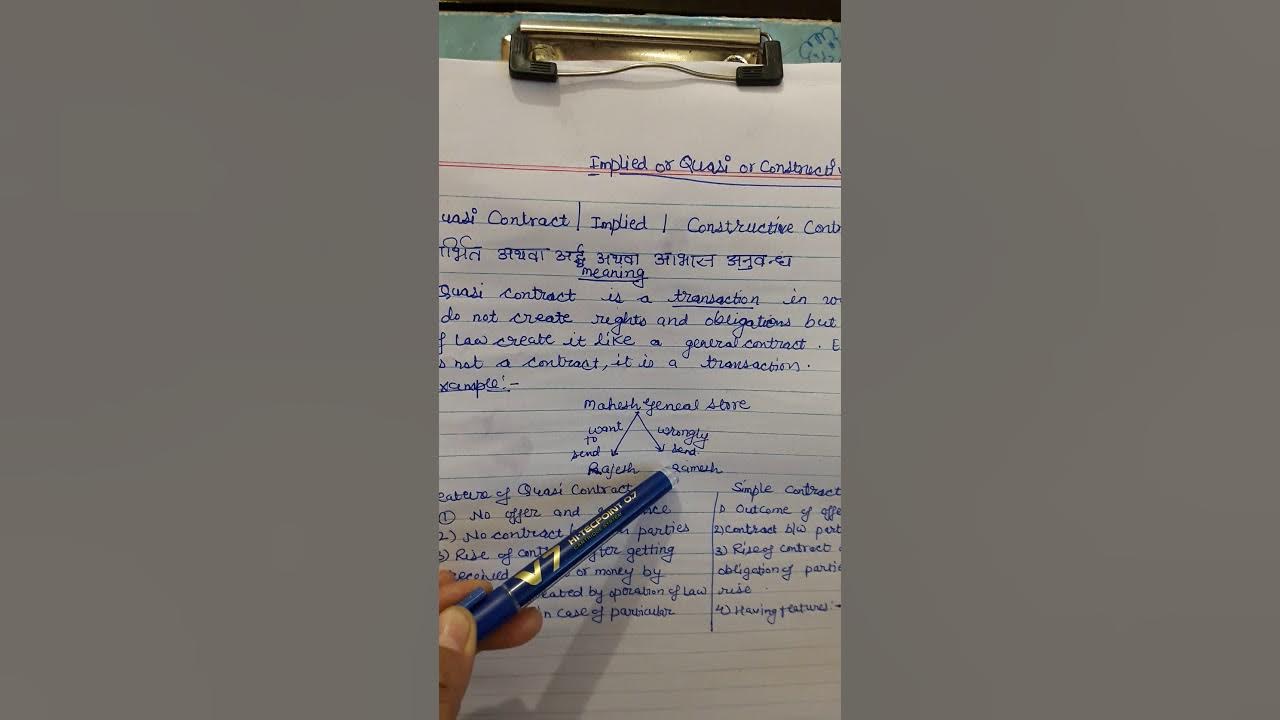 Implied or Quasi or Constructiv
uasi Contract | Implied | Constructive Contr
अथवा अर्द्ध अथवा आभास अनुबन्ध
meaning
Quasi contract is a transaction in
do not create reghts and obligations but
f Law create it like a general contract. E
s not a contract, it is a transaction.
xample:-
Mahesh Geneal Store
want to send
wrongly send
Rajesh
Ramesh
eature of Quasi Contract
① No offer and
2) No contract parties
3) Rise of after getting
received or money by
eated by operation of Law
in case of particular
Simple contract
1) Outcome of offe
2) Contract b/w part
3) Rise of contract
obligation of partie
rise.
4) Having features:-
V7 HI-TECPOINT 0.7